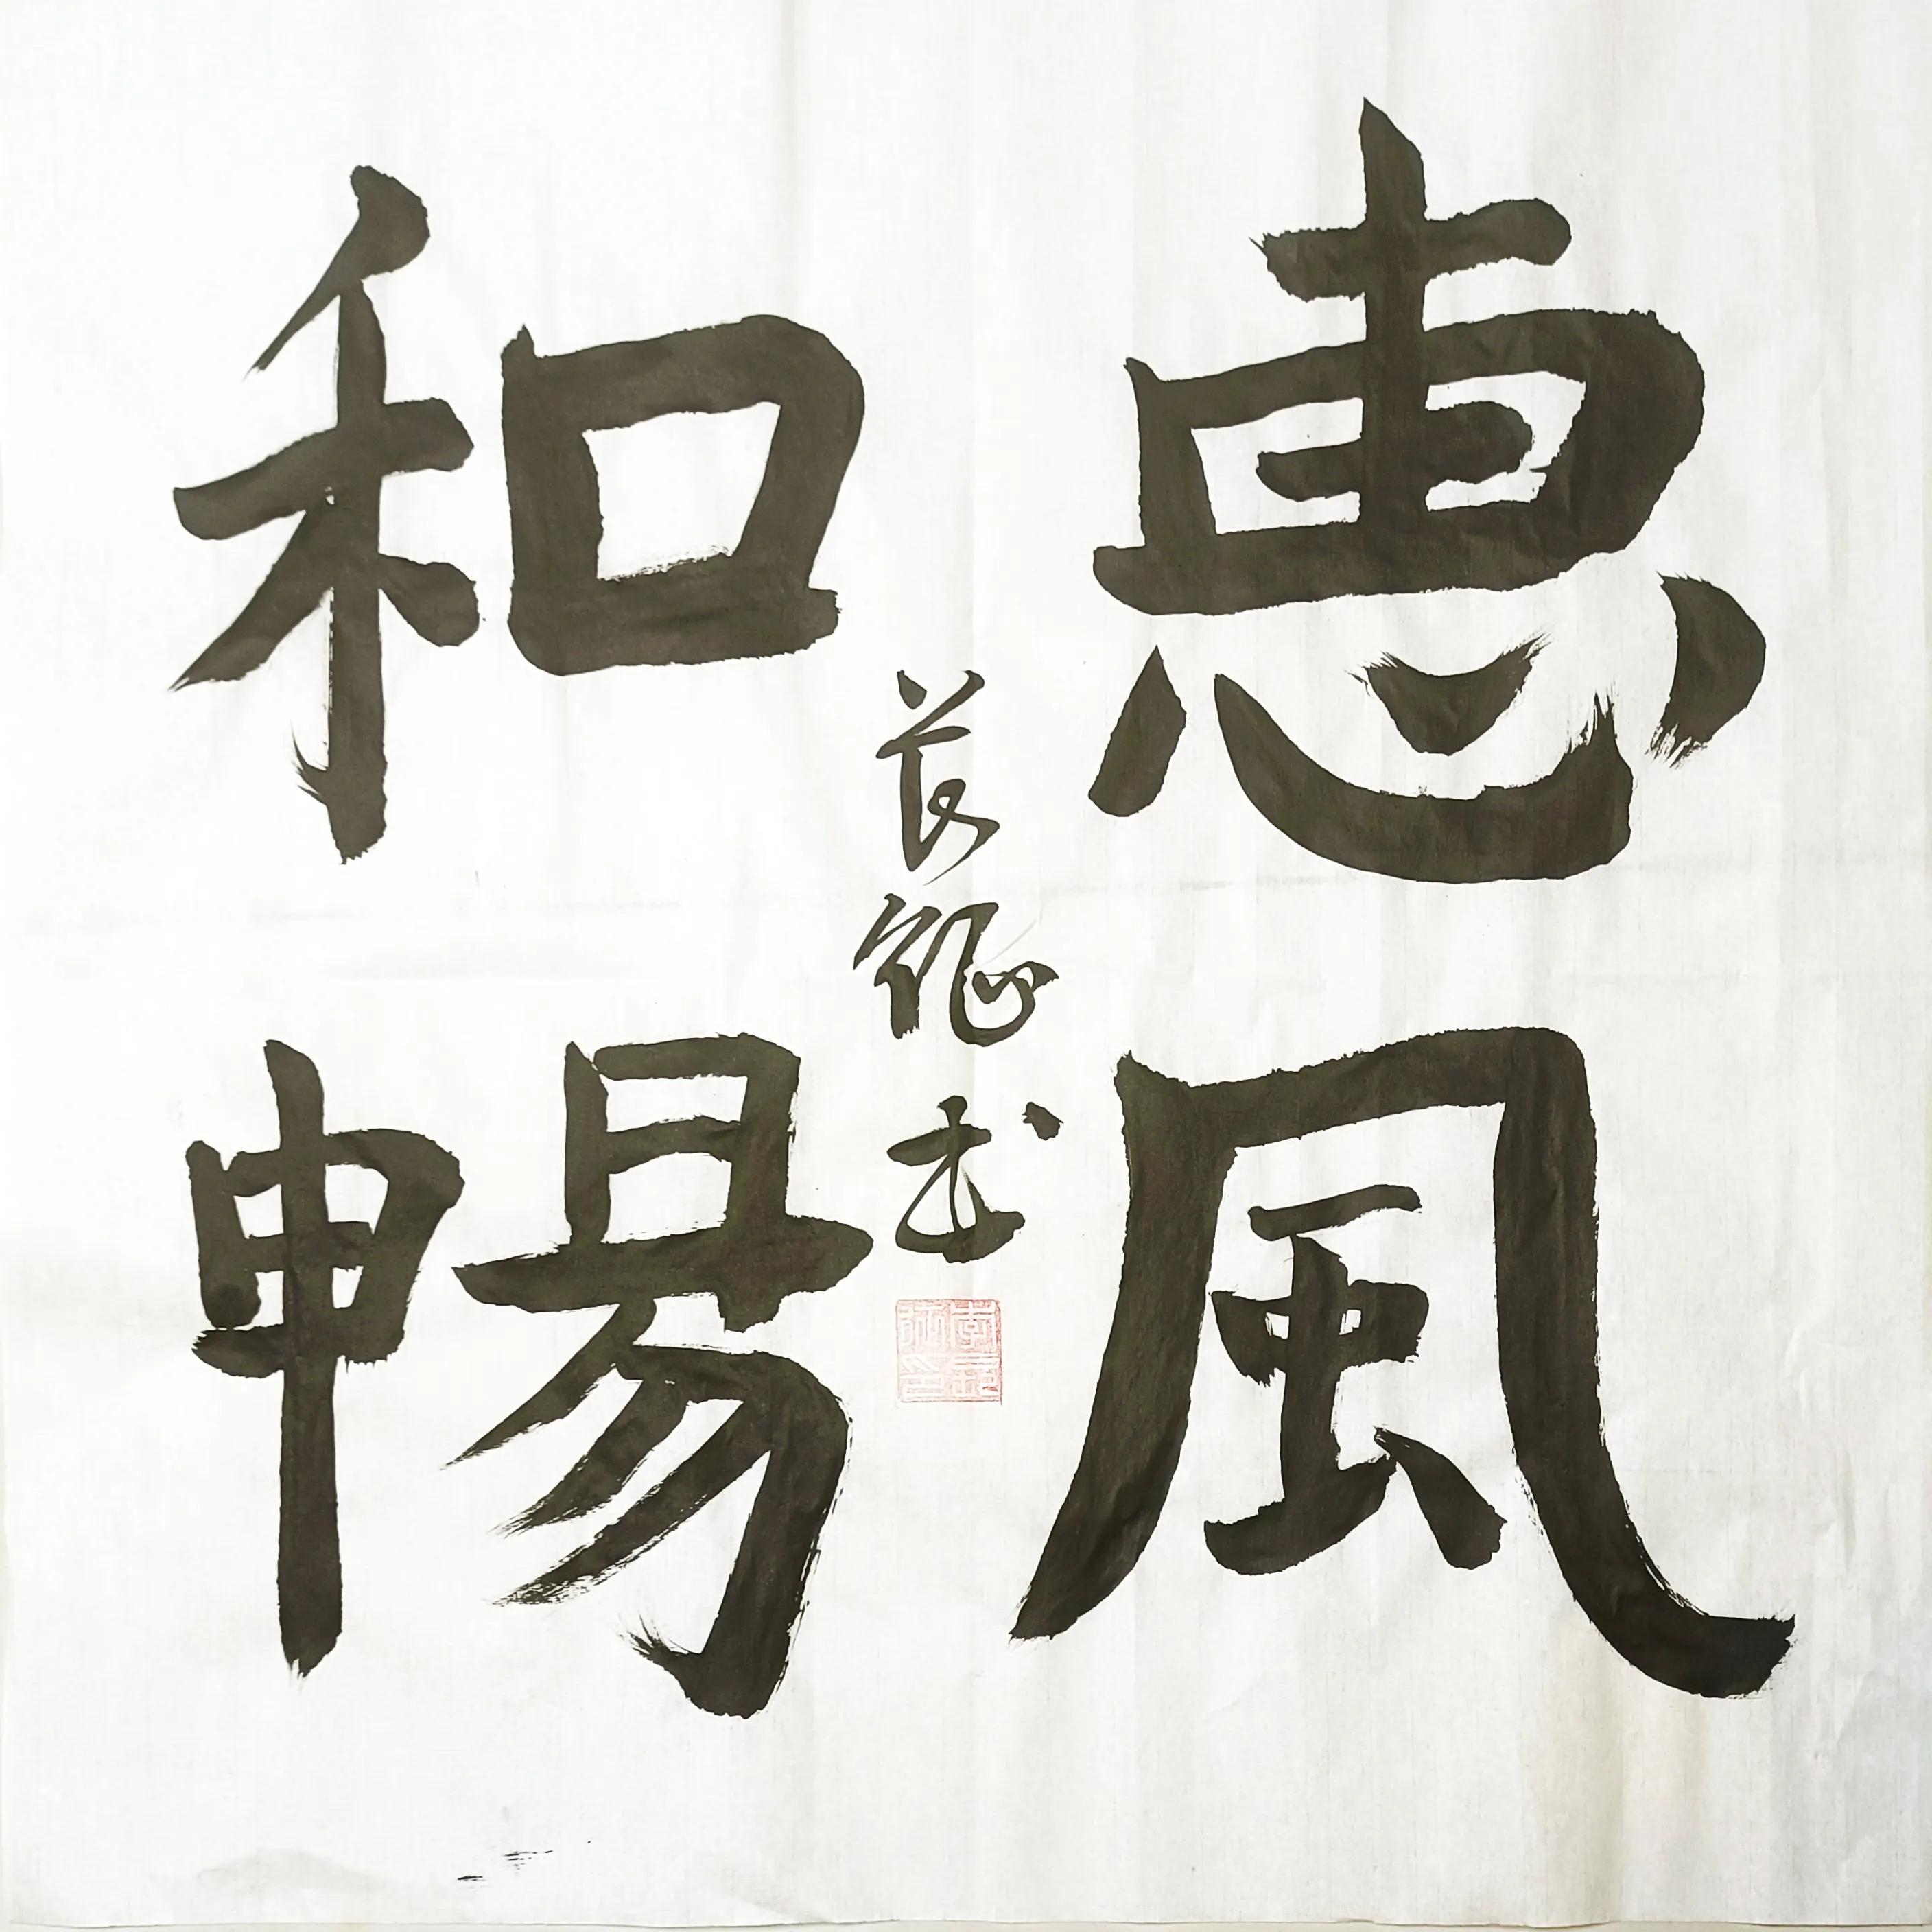 惠風
和暢
书